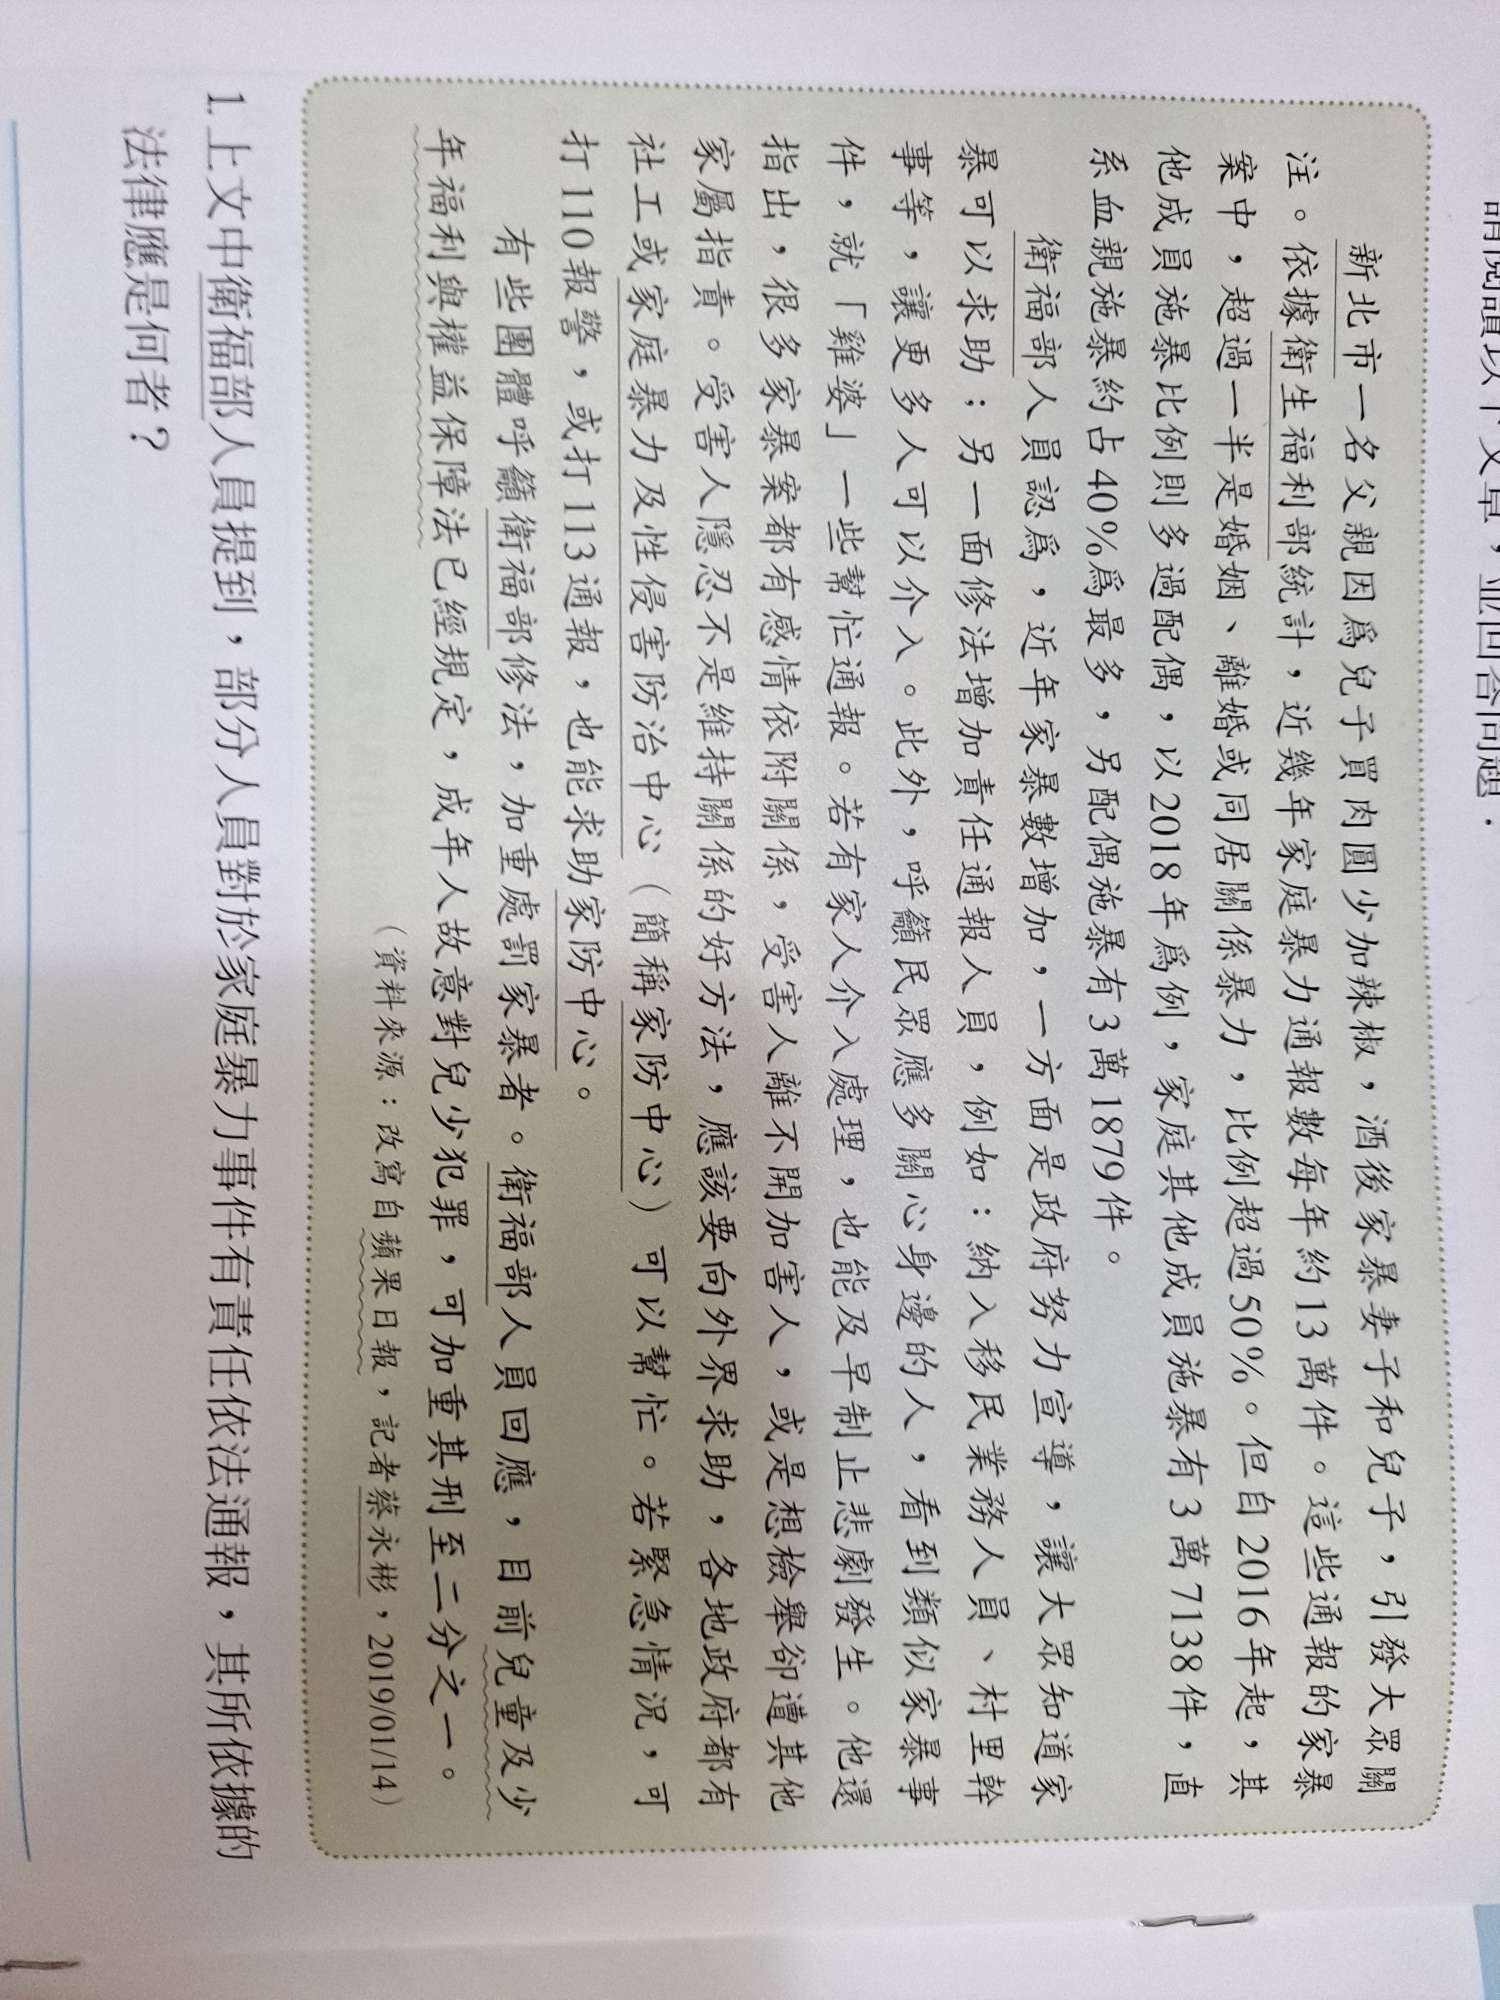 請閱讀以下文章，並回答問題：
新北市一名父親因為兒子買肉圓少加辣椒，酒後家暴妻子和兒子，引發大眾關
注。依據衛生福利部統計，近幾年家庭暴力通報數每年約13萬件。這些通報的家暴
案中，超過一半是婚姻、離婚或同居關係暴力，比例超過50%。但自2016年起，其
他成員施暴比例則多過配偶，以2018年為例，家庭其他成員施暴有3萬7138件，直
系血親施暴約占40%為最多，另配偶施暴有3萬1879件。
衛福部人員認為，近年家暴數增加，一方面是政府努力宣導，讓大眾知道家
暴可以求助；另一面修法增加責任通報人員，例如：納入移民業務人員、村里幹
事等，讓更多人可以介入。此外，呼籲民眾應多關心身邊的人，看到類似家暴事
件，就「雞婆」一些幫忙通報。若有家人介入處理，也能及早制止悲劇發生。他還
指出，很多家暴案都有感情依附關係，受害人離不開加害人，或是想檢舉卻遭其他
家屬指責。受害人隱忍不是維持關係的好方法，應該要向外界求助，各地政府都有
社工或家庭暴力及性侵害防治中心（簡稱家防中心）可以幫忙。若緊急情況，可
打110報警，或打113通報，也能求助家防中心。
有些團體呼籲衛福部修法，加重處罰家暴者。衛福部人員回應，目前兒童及少
年福利與權益保障法已經規定，成年人故意對兒少犯罪，可加重其刑至二分之一。
（資料來源：改寫自蘋果日報，記者蔡永彬，2019/01/14）
1. 上文中衛福部人員提到，部分人員對於家庭暴力事件有責任依法通報，其所依據的
法律應是何者？